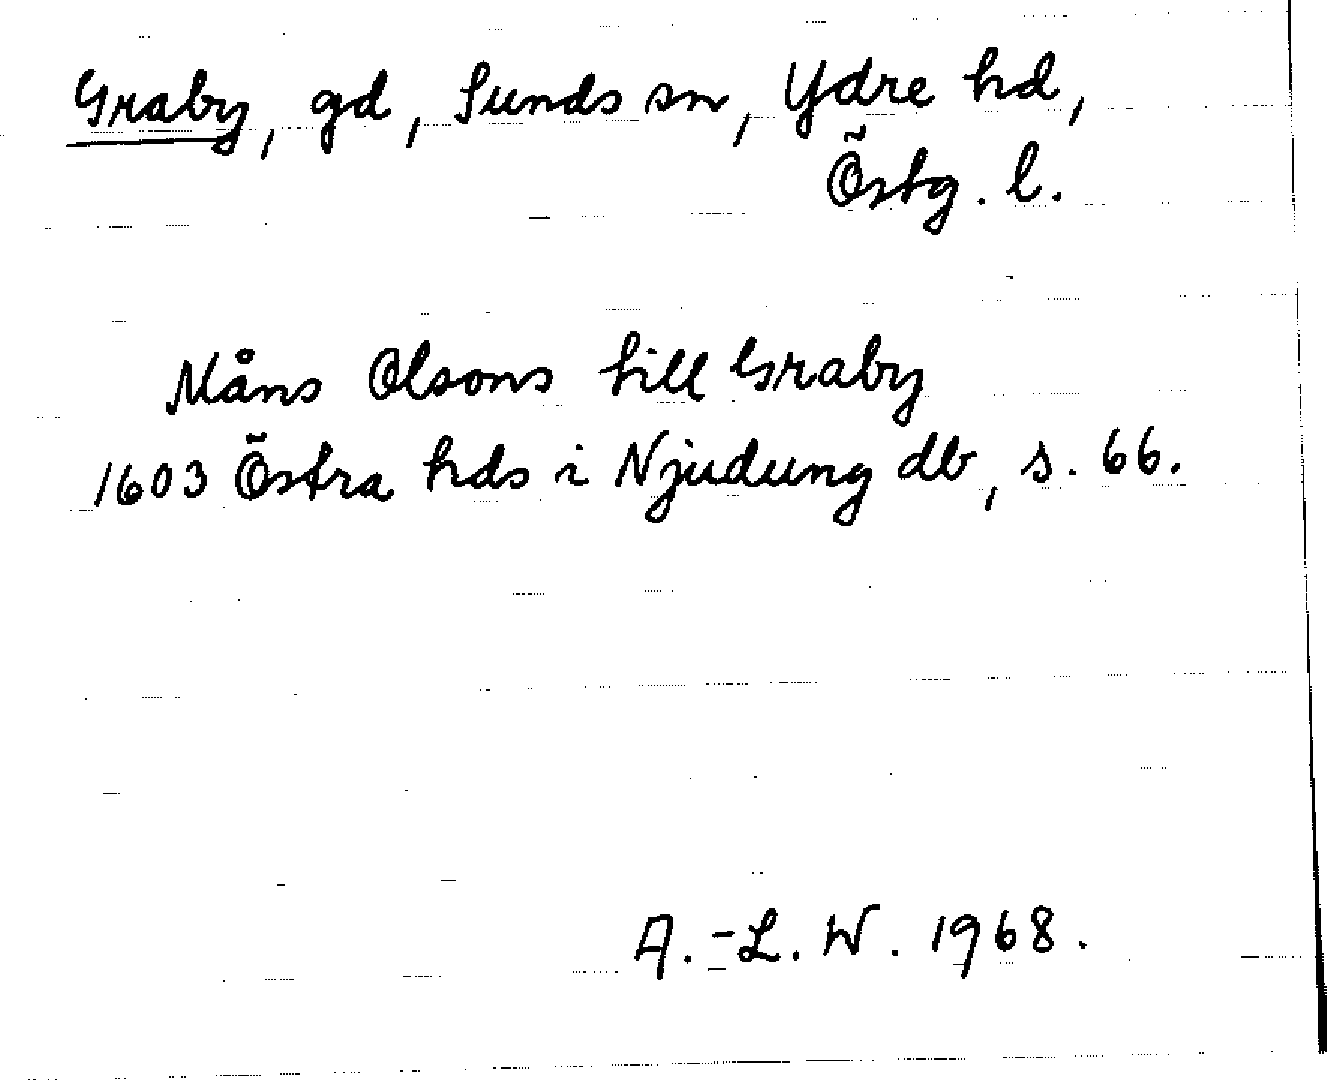 Graby, gd, Sunds sn, Ydre hd,
Östg. l.
Måns Olsons till Graby
1603 Östra hds i Njudung db, s. 66.
A.-L. W. 1968.